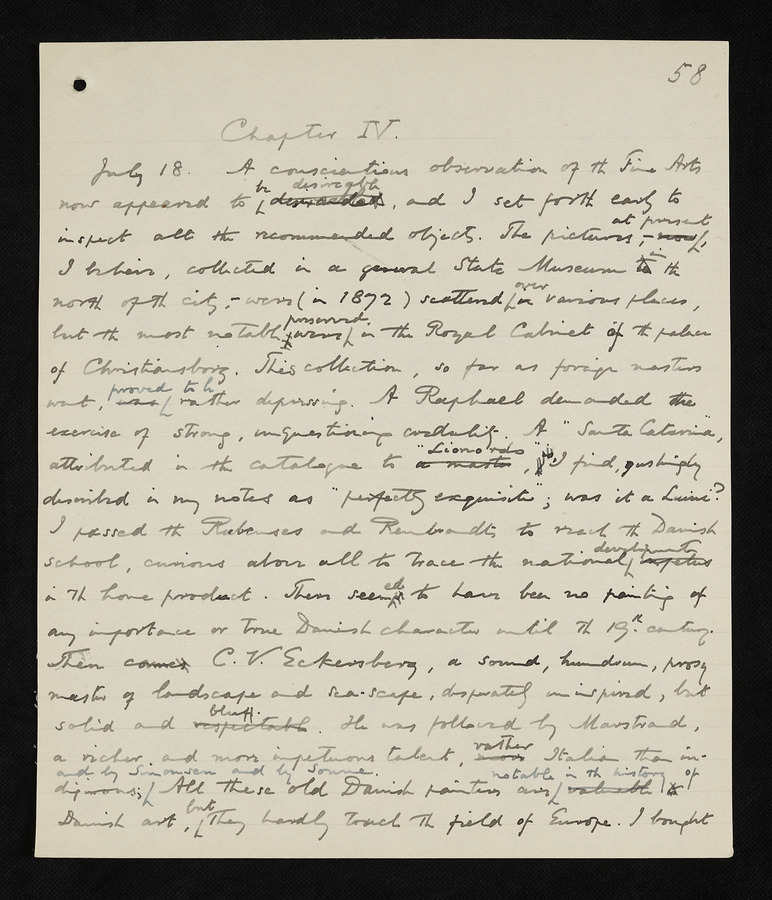 58
Chapter IV.
July 18. A conscientious observation of th Fine Arts
now appeared to be desireable demanded, and I set forth early to
inspect all the recommended objects. The pictures, at present – now,
I believe, collected in a general State Museum in to the
north of th city, – were (in 1872) scattered over in various places,
but th most notable, preserved were in the Royal Cabinet of th palace
of Christiansborg. This collection, so far as foreign masters
went, proved to be was rather depressing. A Raphael demanded the
exercise of strong, unquestioning credulity. A "Santa Catarina",
attributed in the catalogue to "Lionardo" a master, I find, gushingly
described in my notes as "perfectly exquisite"; was it a Luini?
I passed th Rubenses and Rembrandts to reach th Danish
school, curious above all to trace the national developments impetus
in th home product. There seemed to have been no painting of
any importance or true Danish character until th 19th. century.
Then comes C. V. Eckersberg, a sound, humdrum, prosy
master of landscape and sea-scape, desperately uninspired, but
solid and bluff respectable. He was followed by Marstrand,
a richer and more impetuous talent, rather more Italian than in-
digenous; and by Simonsen and by Sonne. All these old Danish painters are notable in th history of valuable to
Danish art, but They hardly touch th field of Europe. I bought